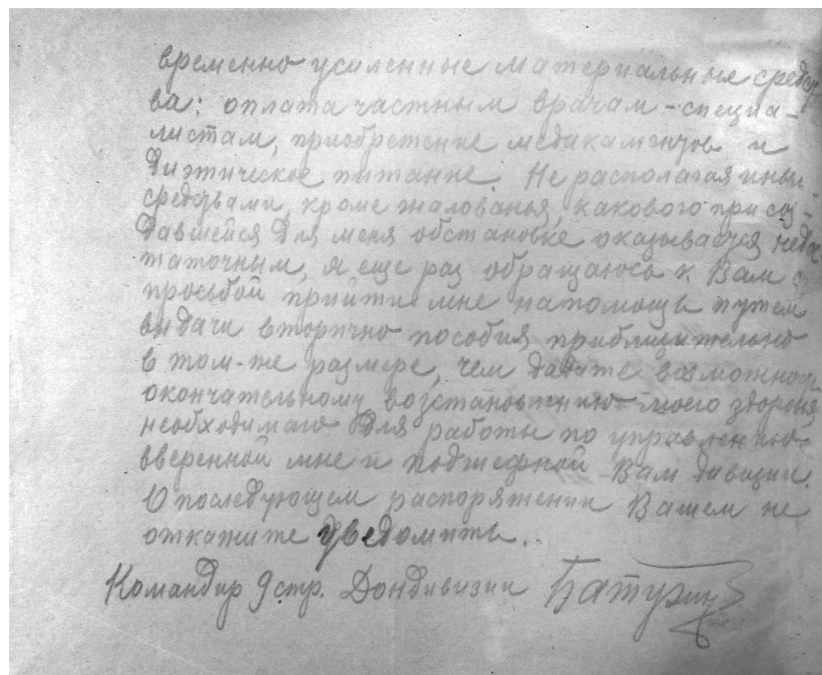 временно усиленные материальные средст-
ва: оплата частным врачам-специа-
листам, приобретение медикаментов и
диэтическое питание. Не располагая ины-
средствами, кроме жалованья, какового при соз-
давшейся для меня обстановке оказывается недос-
таточным, я еще раз обращаюсь к Вам с
просьбой прийти мне на помощь путем
выдачи вторично пособия приблизительно
в том-же размере, чем дадите возможность
окончательному возстановлению моего здоровья
необходимаго для работы по управлению
вверенной мне и подшефной Вам дивизии.
О последующем распоряжении Вашем не
откажите уведомить.
Командир 9 стр. Дондивизии Батурин